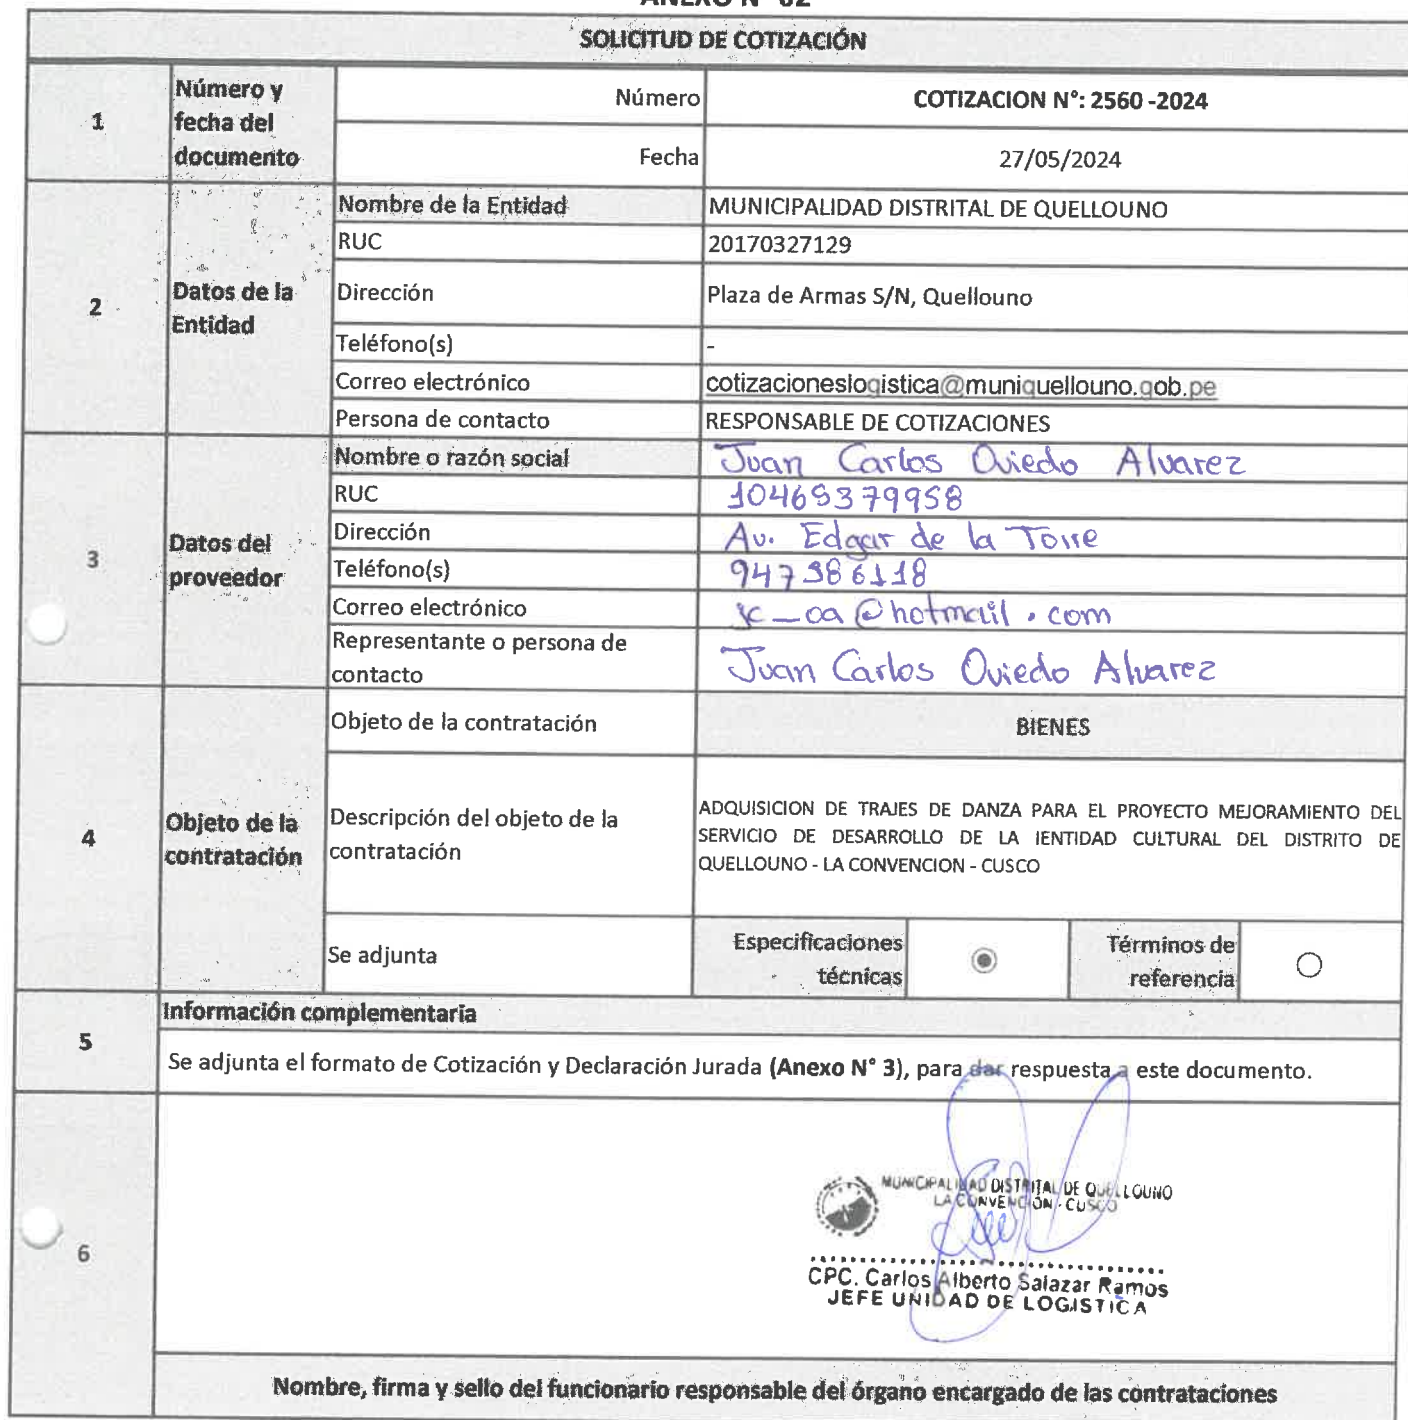 SOLICITUD DE COTIZACIÓN
1
Número y
fecha del
documento
Número
COTIZACION N°: 2560 -2024
Fecha
27/05/2024
2
Datos de la
Entidad
Nombre de la Entidad
MUNICIPALIDAD DISTRITAL DE QUELLOUNO
RUC
20170327129
Dirección
Plaza de Armas S/N, Quellouno
Teléfono(s)
-
Correo electrónico
cotizacioneslogistica@muniquellouno.gob.pe
Persona de contacto
RESPONSABLE DE COTIZACIONES
3
Datos del
proveedor
Nombre o razón social
Juan Carlos Oviedo Alvarez
RUC
Dirección
Av. Edgar de la Torre
Teléfono(s)
Correo electrónico
Representante o persona de
contacto
Juan Carlos Oviedo Alvarez
4
Objeto de la
contratación
Objeto de la contratación
BIENES
Descripción del objeto de la
contratación
ADQUISICION DE TRAJES DE DANZA PARA EL PROYECTO MEJORAMIENTO DEL
SERVICIO DE DESARROLLO DE LA IENTIDAD CULTURAL DEL DISTRITO DE
QUELLOUNO - LA CONVENCION - CUSCO
Se adjunta
Especificaciones
técnicas
Términos de
referencia
5
Información complementaria
Se adjunta el formato de Cotización y Declaración Jurada (Anexo N° 3), para dar respuesta a este documento.
6
MUNICIPALIDAD DISTRITAL DE QUELLOUNO
LA CONVENCION - CUSCO
CPC. Carlos Alberto Salazar Ramos
JEFE UNIDAD DE LOGISTICA
Nombre, firma y sello del funcionario responsable del órgano encargado de las contrataciones